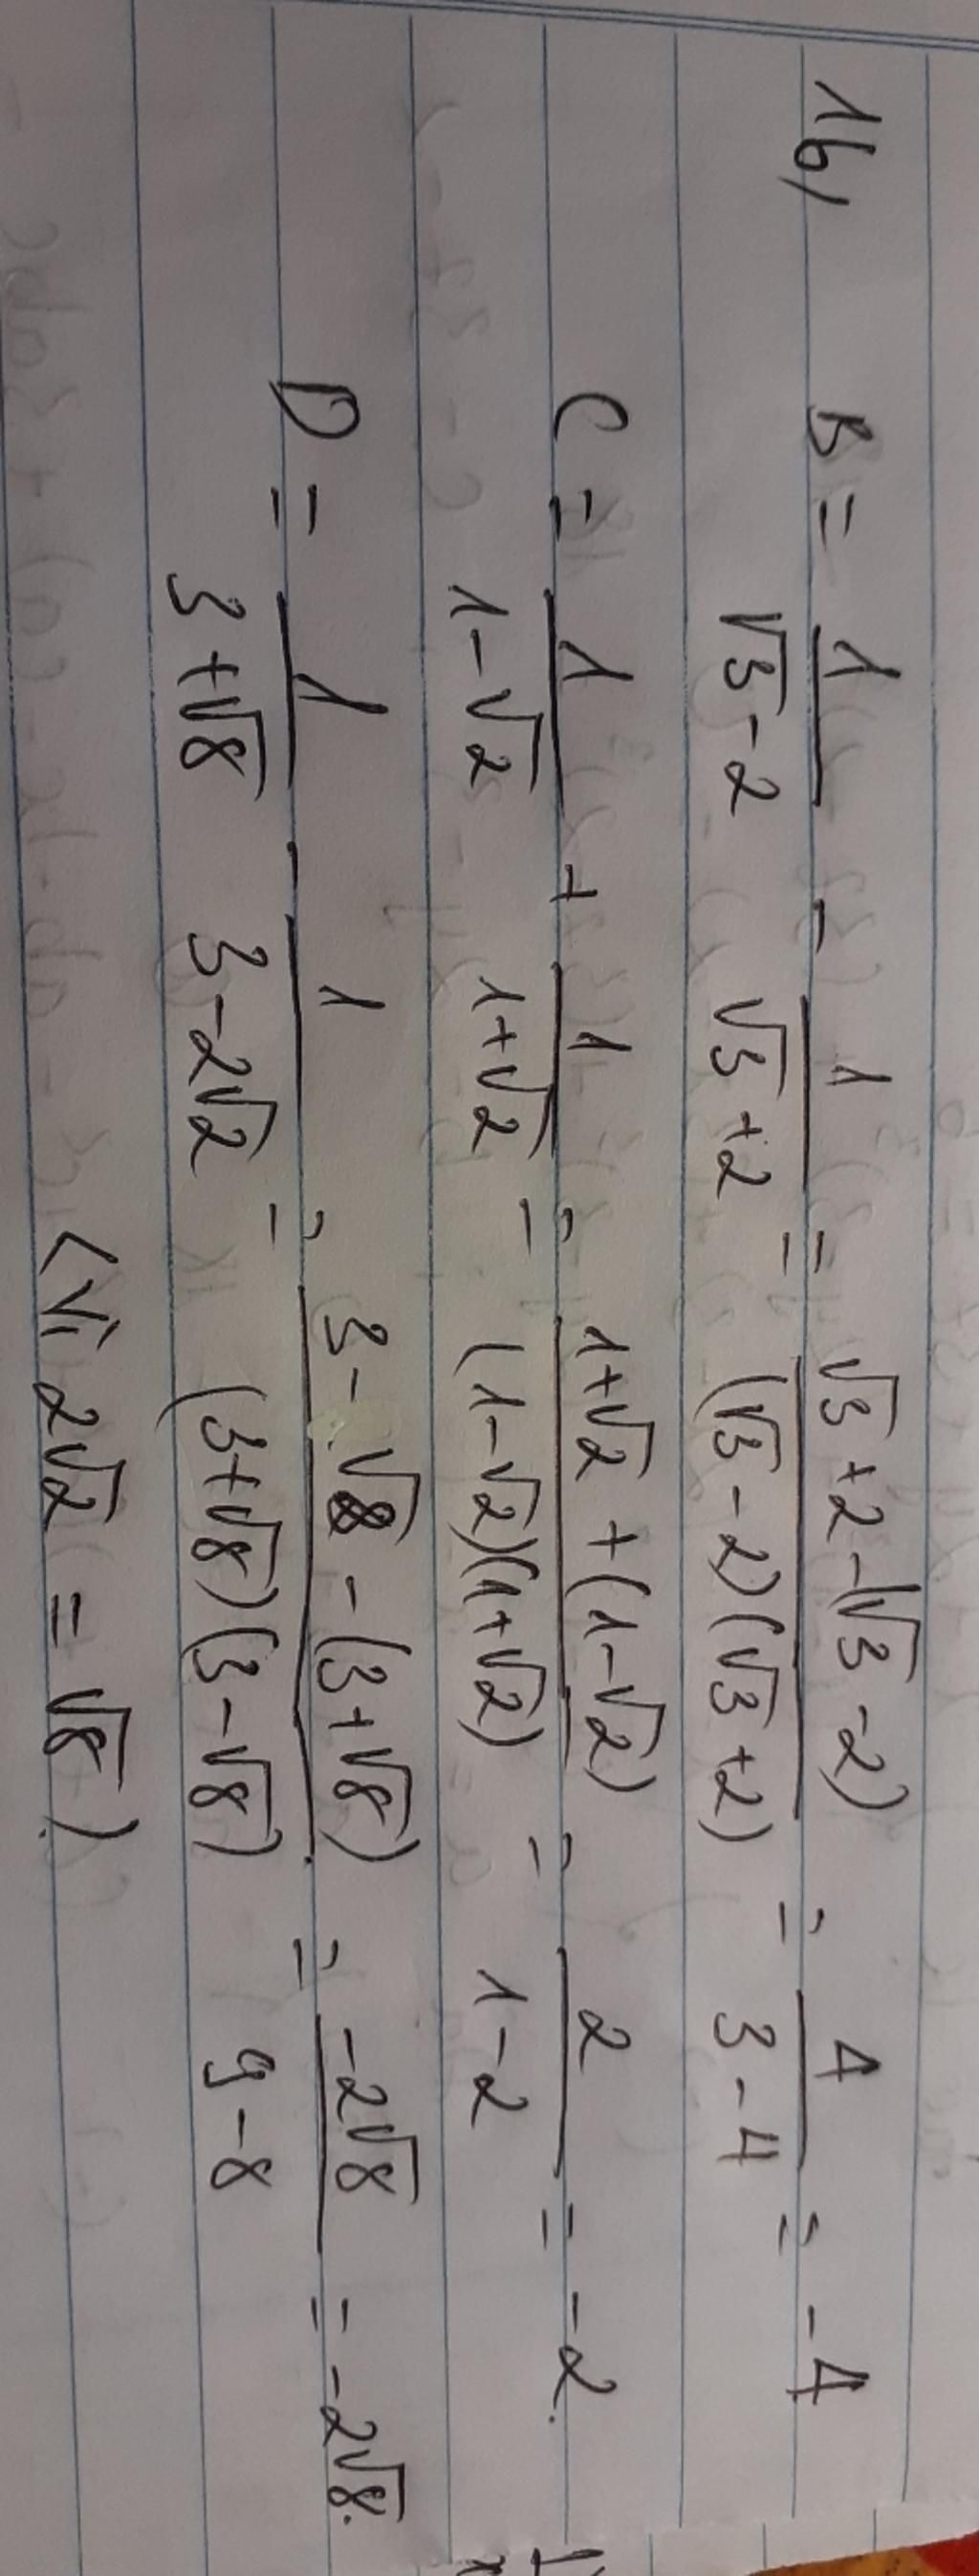 1b, B = 1/(√3-2) - 1/(√3+2) = (√3+2-(√3-2))/((√3-2)(√3+2)) = 4/(3-4) = -4
C = 1/(1-√2) + 1/(1+√2) = (1+√2+(1-√2))/((1-√2)(1+√2)) = 2/(1-2) = -2.
D = 1/(3+√8) - 1/(3-2√2) = (3-√8-(3+√8))/((3+√8)(3-√8)) = -2√8/(9-8) = -2√8.
(Vì 2√2 = √8).